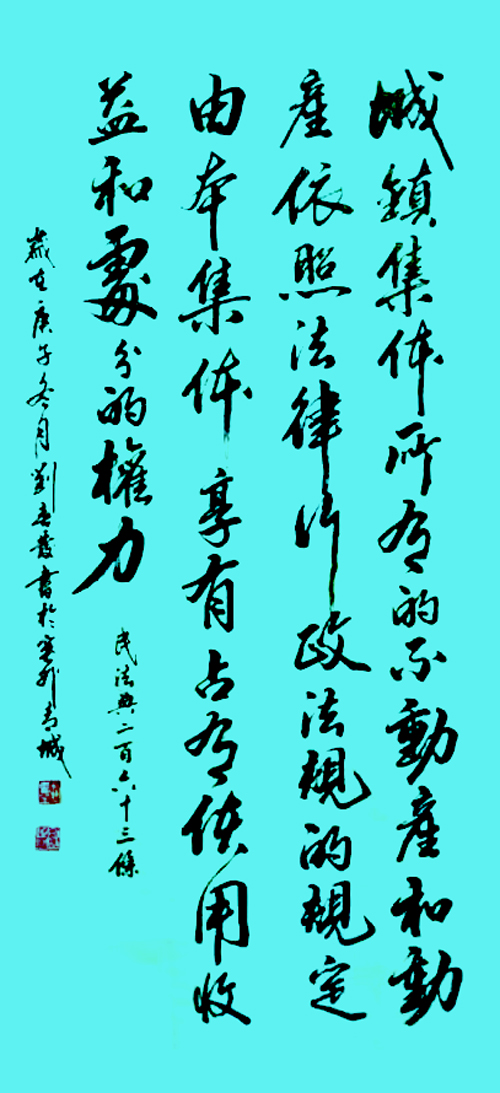 城鎮集体所有的不動產和動
產依照法律行政法規的規定
由本集体享有占有使用收
益和處分的權力
民法典二百六十三條
歲在庚子冬月劉春發書於塞外青城